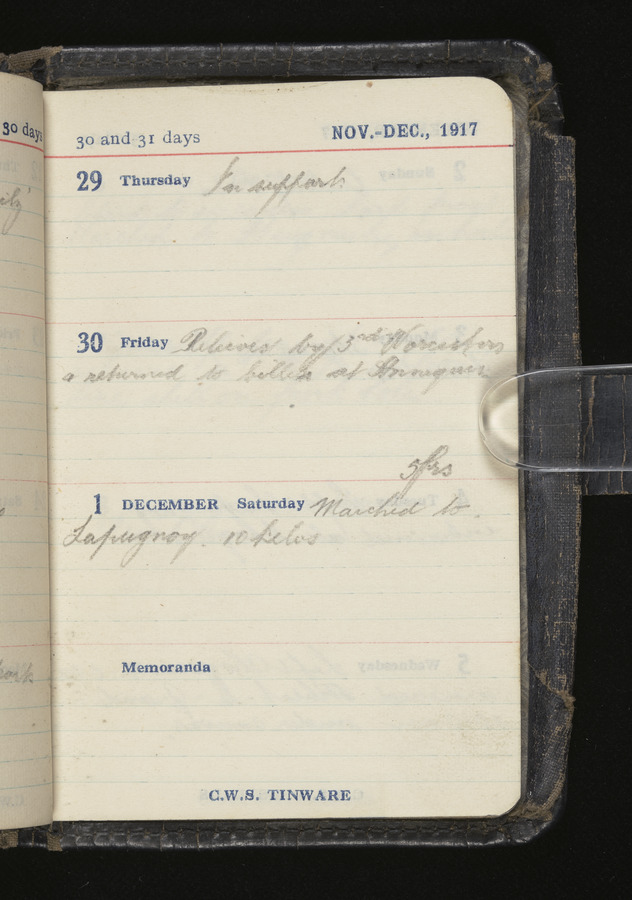 30 days
30 and 31 days NOV.-DEC., 1917
29 Thursday In support
30 Friday Relieved by 3rd Worcesters
& returned to billets at Annequin
5frs
1 DECEMBER Saturday Marched to
Lapugnoy. 10 kilos
Memoranda
C.W.S. TINWARE